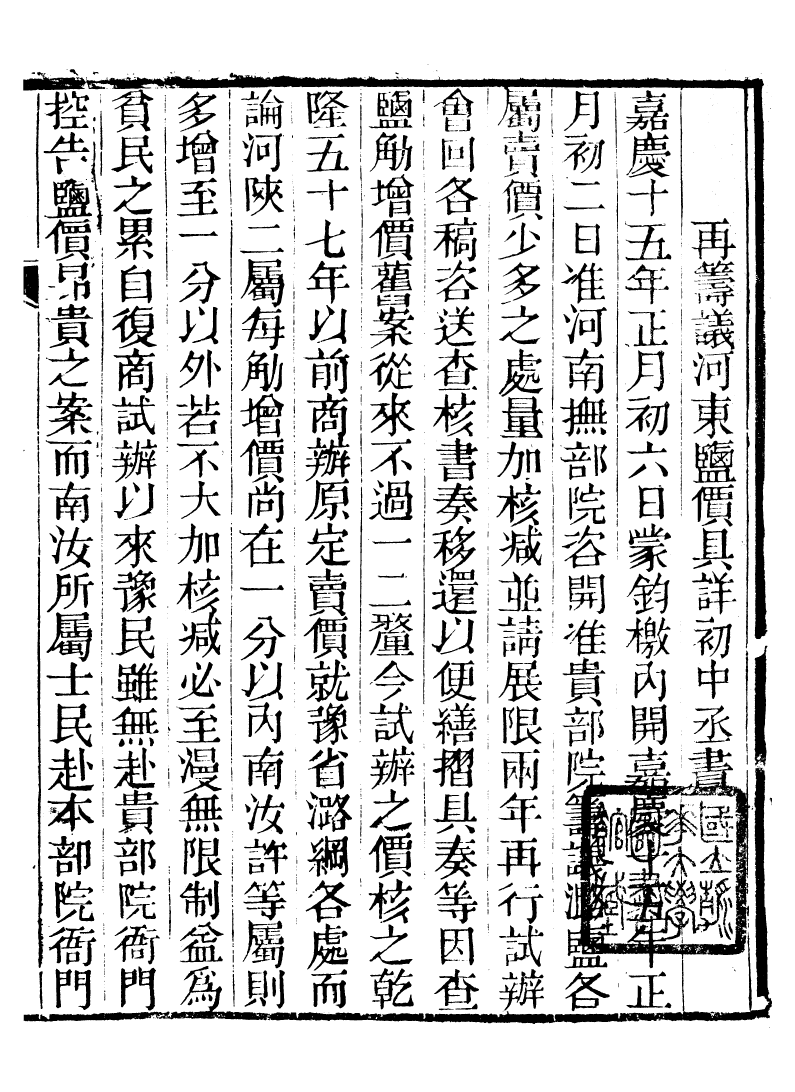 再籌議河東鹽價具詳初中丞書
嘉慶十五年正月初六日蒙鈞檄內開嘉慶十五年正
月初二日准河南撫部院咨開准貴部院籌議潞鹽各
屬賣價少多之處量加核減並請展限兩年再行試辦
會回各稿咨送查核書奏移還以便繕摺具奏等因查
鹽觔增價舊案從來不過一二釐今試辦之價核之乾
隆五十七年以前商辦原定賣價就豫省潞綱各處而
論河陝二屬每觔增價尚在一分以內南汝許等屬則
多增至一分以外若不大加核減必至漫無限制益為
貧民之累自復商試辦以來豫民雖無赴貴部院衙門
控告鹽價昂貴之案而南汝所屬士民赴本部院衙門